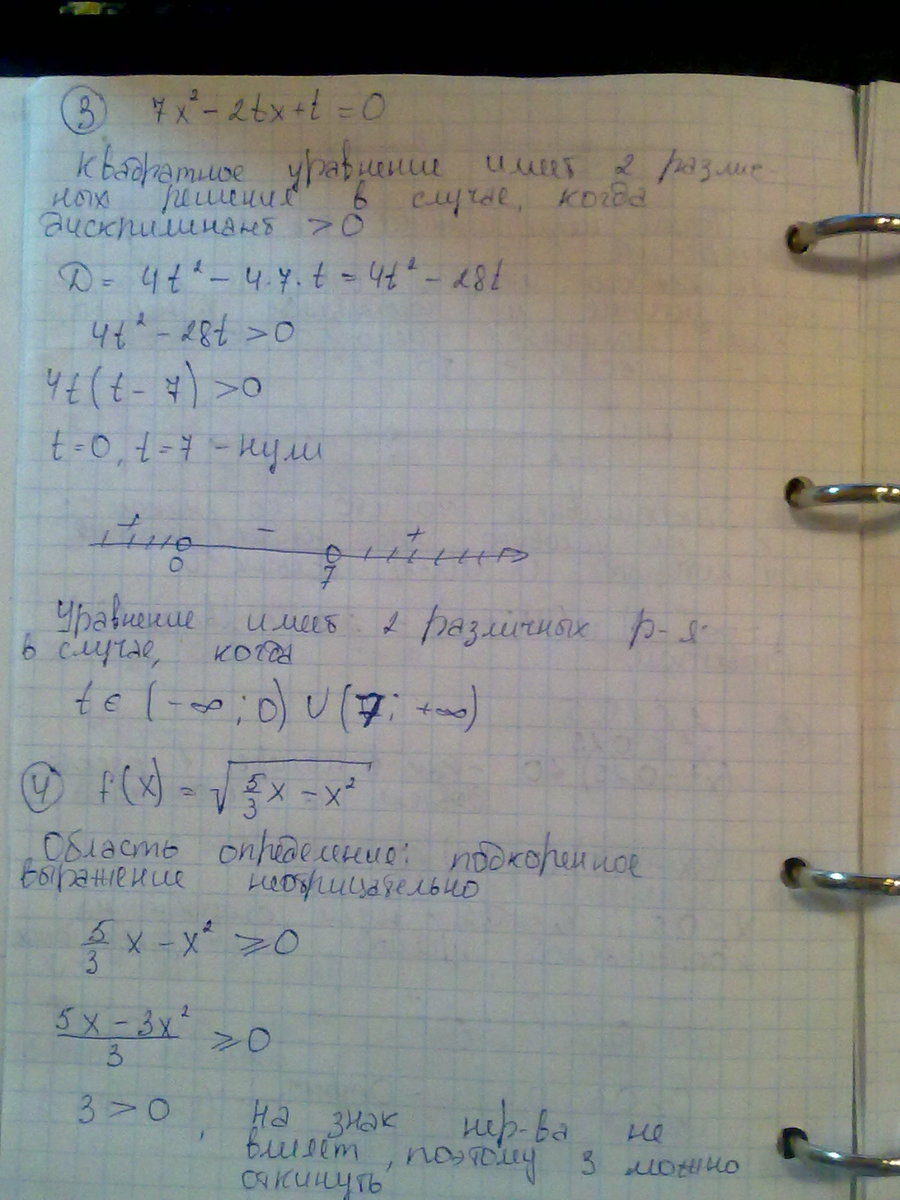 ③ 7x² - 2tx + t = 0
Квадратное уравнение имеет 2 различ-
ных решения в случае, когда
дискриминант > 0
D = 4t² - 4·7·t = 4t² - 28t
4t² - 28t > 0
4t(t - 7) > 0
t=0, t=7 - нули
+ - +
0 7
Уравнение имеет 2 различных р-я
в случае, когда
t ∈ (-∞; 0) ∪ (7; +∞)
④ f(x) = √(5/3 x - x²)
Область определение: подкоренное
выражение неотрицательно
5/3 x - x² ≥ 0
(5x - 3x²)/3 ≥ 0
3 > 0, на знак нер-ва не
влияет, поэтому 3 можно
откинуть